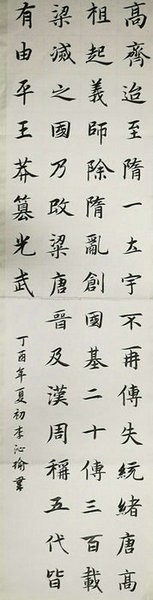 高齊迨至隋一土宇不再傳失統緒唐高
祖起義師除隋亂創國基二十傳三百載
梁滅之國乃改梁唐晉及漢周稱五代皆
有由平王莽篡光武
丁酉年夏初李沁榆書